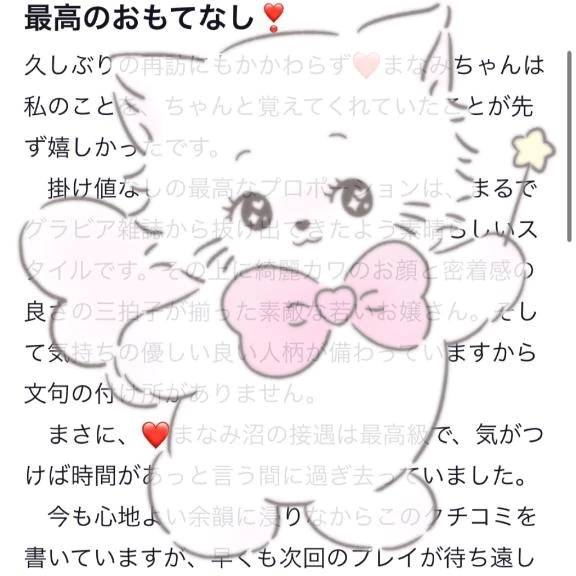 最高のおもてなし❣️
久しぶりの再訪にもかかわらず❤️まなみちゃんは
私のことを、ちゃんと覚えてくれていたことが先
ず嬉しかったです。
　掛け値なしの最高なプロポーションは、まるで
グラビア雑誌から抜け出てきたよう素晴らしいス
タイルです。その上に綺麗カワのお顔と密着感の
良さの三拍子が揃った素敵な若いお嬢さん。そし
て気持ちの優しい良い人柄が備わっていますから
文句の付け所がありません。
　まさに、❤️まなみ沼の接遇は最高級で、気がつ
けば時間があっと言う間に過ぎ去っていました。
　今も心地よい余韻に浸りなからこのクチコミを
書いていますが、早くも次回のプレイが待ち遠し